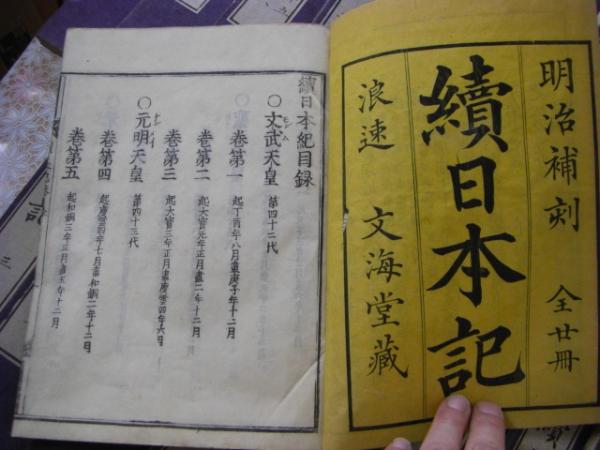 明治補刻
全廿冊
續日本記
浪速 文海堂藏
續日本紀目録
○文武天皇 第四十二代
卷第一 起丁酉年八月盡庚子年十二月
卷第二 起大宝元年正月盡二年十二月
卷第三 起大宝三年正月盡慶雲四年六月
○元明天皇 第四十三代
卷第四 起慶雲四年七月盡和銅二年十二月
卷第五 起和銅三年正月盡五年十二月